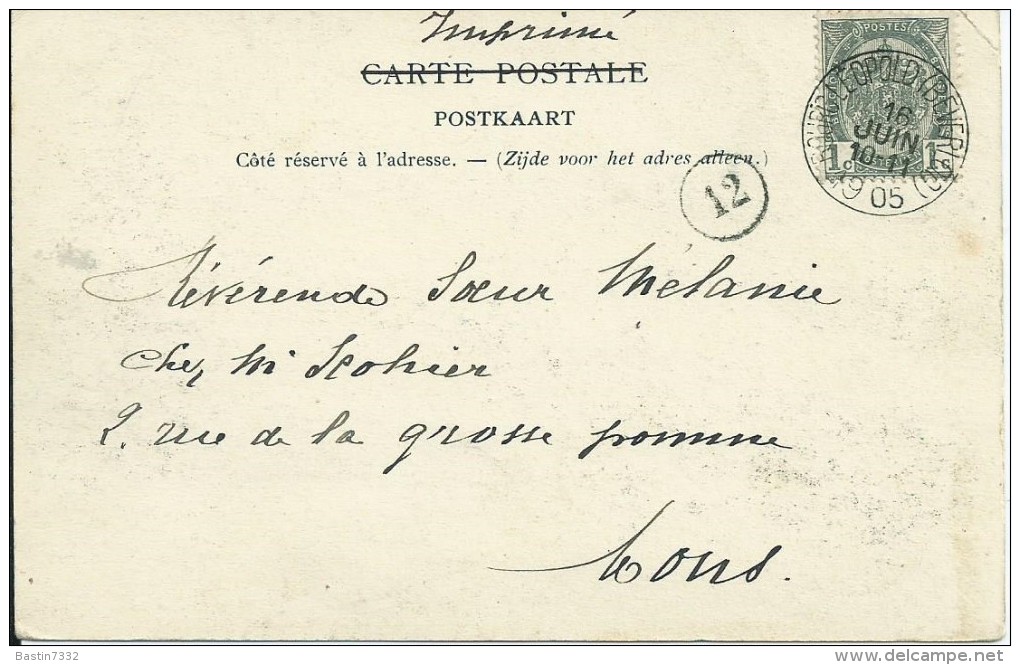 Imprimé
CARTE POSTALE
POSTKAART
Côté réservé à l'adresse. — (Zijde voor het adres alleen.)
POSTES
1 c 1 c
16
JUIN
10-11
05
12
Révérende Sœur Mélanie
chez Mr Scohier
2. rue de la grosse pomme
Mons.
Bastin7332
www.delcampe.net